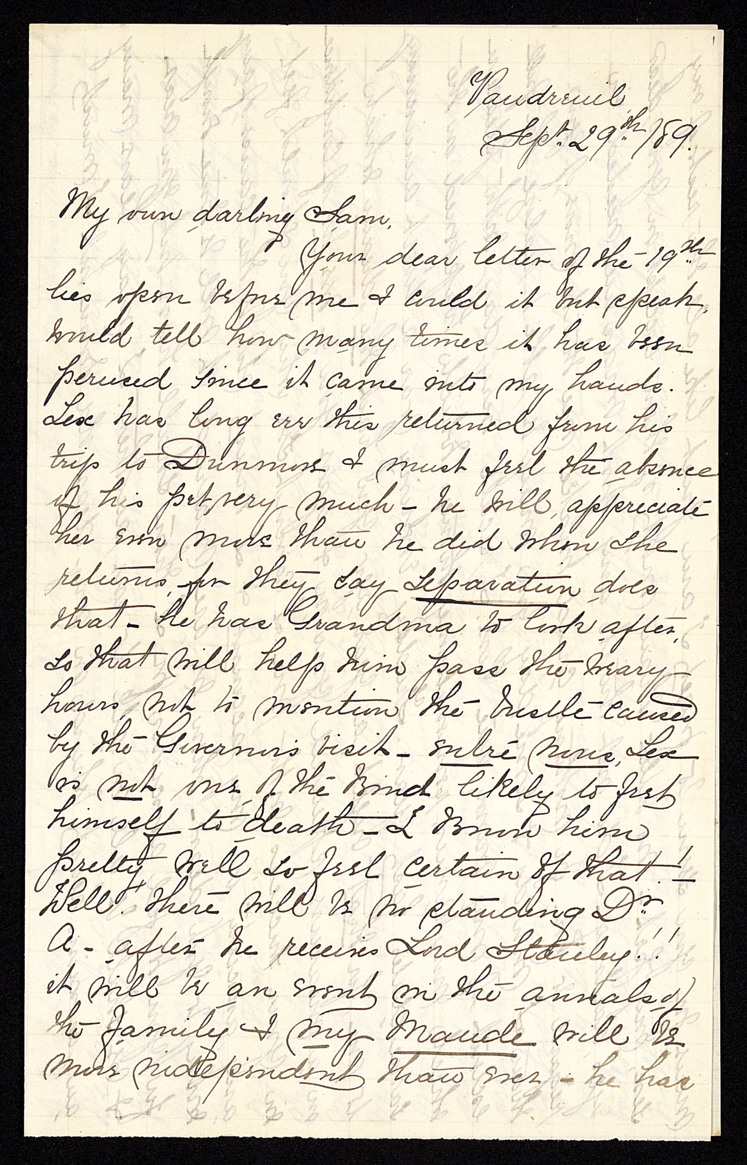 Vaudreuil
Sept. 29th /89.
My own darling Sam,
Your dear letter of the 19th
lies open before me & could it but speak,
would tell how many times it has been
perused since it came into my hands.
Lex has long ere this returned from his
trip to Dunmore & must feel the absence
of his pet very much - he will appreciate
her even more than he did when she
returns, for they say separation does
that - he has Grandma to look after,
so that will help him pass the weary
hours, not to mention the bustle caused
by the Governor's visit - entre nous, Lex
is not one of the kind likely to fret
himself to death - I know him
pretty well so feel certain of that! -
Well! there will be no standing Dr
A - after he receives Lord Stanley!!
it will be an event in the annals of
the family & my Maude will be
more independent than ever - he has